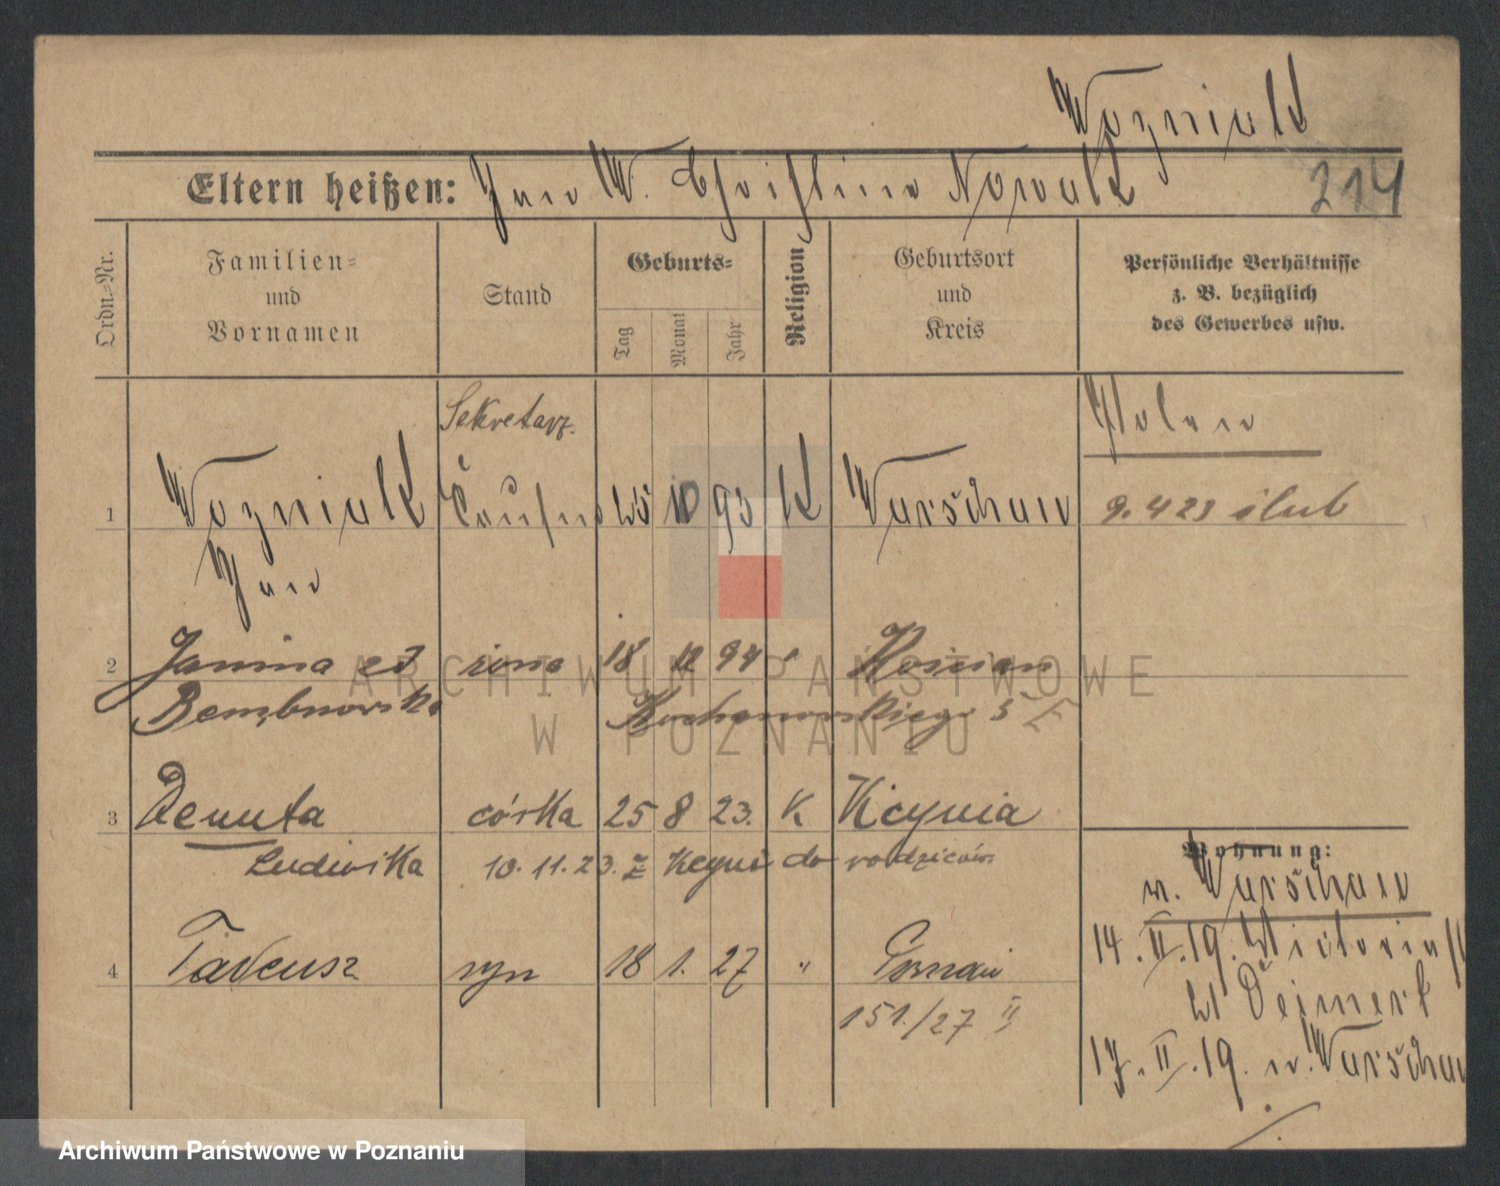 Wozniak
Eltern heißen: Jan W. Christine Nowak
214
Ordn.-Nr.
Familien- und Vornamen
Stand
Geburts-
Tag
Monat
Jahr
Religion
Geburtsort und Kreis
Persönliche Verhältnisse
z. B. bezüglich
des Gewerbes usw.
Sekretarz
Polen
1 Wozniak 10 93 K Warschau 9. 4 23 ślub
Jan
2 Janina zd żona 18 12 94 " Kościan
Kochanowskiego 5
3 Danuta córka 25 8 23. K Kcynia
Ludwika 10. 11. 23. z Kcyni do rodziców
Wohnung:
n. Warschau
4 Tadeusz syn 18 1. 27 " Poznań
14. II. 19. Victoria
151./27 II
17. II. 19. n. Warschau
ARCHIWUM PAŃSTWOWE
W POZNANIU
Archiwum Państwowe w Poznaniu